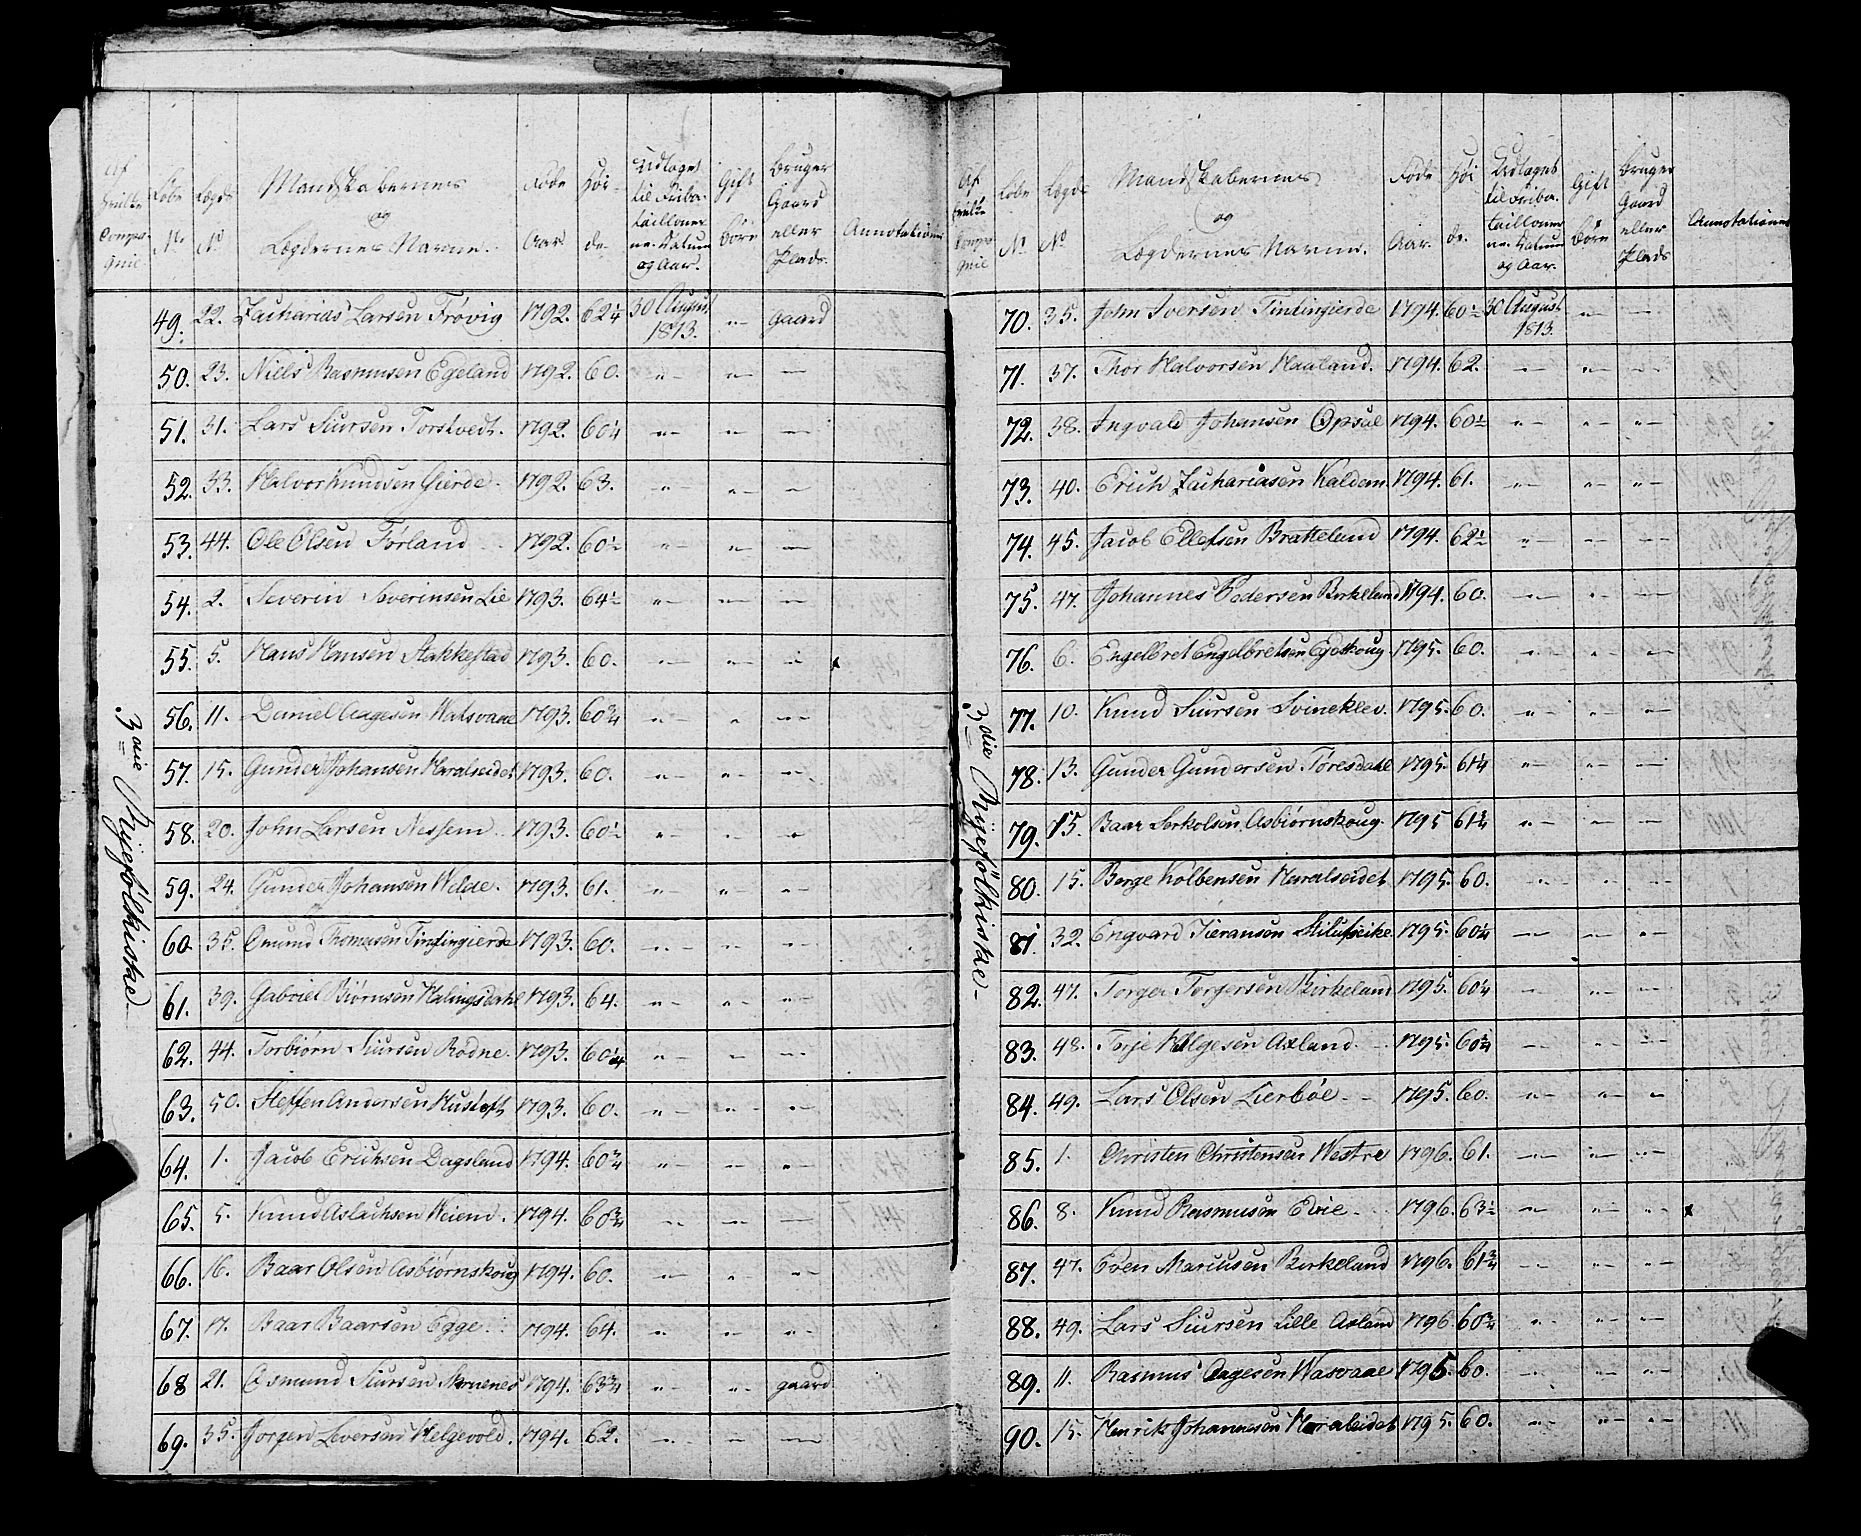 Af hvilke Compagnie | Løbe No | Lægds No | Mandskabernes og Lægdernes Navne. | Føde Aar | Høide | Udtaget til Fribataillonerne. Datum og Aar. | Gift Børn | Bruger Gaard eller Plads. | Annotationer
3die Ryefølkiske
49. 22. Zacharias Larsen Frøvig 1792. 62 1/4 30 August 1813. "— gaard
50. 23. Niels Rasmusen Egeland 1792. 60. "— "— —
51. 31. Lars Siursen Torstvedt. 1792. 60 1/4 "— "— "—
52. 33. Halvor Knudsen Gierde. 1792. 63. "— "— —
53. 44. Ole Olsen Førland 1792. 60 1/2 "— "— —
54. 2. Severin Severinsen Lie 1793. 64 1/2 "— "— "—
55. 5. Hans Hansen Stakkestad 1793. 60. "— "— "—
56. 11. Daniel Aagesen Watsvaae 1793. 60 3/4 "— " "—
57. 15. Gunder Johansen Haralseidet 1793. 60. "— "— "—
58. 20. John Larsen Nessem 1793. 60 1/2 "— "— "
59. 24. Gunder Johansen Welde. 1793. 61. "— "— "—
60. 35. Omund Thomesen Tindingierde 1793. 60. "— "— "—
61. 39. Gabriel Biørnsen Halingsdahl 1793. 64. "— "— "—
62. 44. Torbiørn Siursen Rødne. 1793. 60 1/4 "— "— "—
63. 50. Steffen Andersen Hustoft 1793. 60. "— "— "—
64. 1. Jacob Erichsen Dagsland 1794. 60 3/4 "— "— "—
65. 5. Knud Aslachsen Weiem. 1794. 60 3/4 "— "— —
66. 16. Baar Olsen Asbiørnskoug 1794. 60. "— "— "—
67. 17. Baar Baarsen Egge. 1794. 64. " "— "
68 21. Osmund Siursen Skruenes 1794. 63 3/4 "— "— gaard
69. 35. Jørgen Levorsen Helgevold. 1794. 62. "— "— —
Af hvilke Compagnie | Løbe No | Lægds No | Mandskabernes og Lægdernes Navne. | Føde Aar. | Høide. | Udtaget til Fribataillonerne. Datum og Aar. | Gift Børn | Bruger Gaard eller Plads | Annotationer
3die Ryefølkiske
70. 35. John Iversen Tindingierde 1794. 60 1/2 30 August 1813. "— —
71. 37. Thor Halvorsen Haaland. 1794. 62. "— "— "—
72. 38. Ingvald Johansen Opsal 1794. 60 1/2 "— "— "—
73. 40. Erich Zachariasen Kaldem. 1794. 61. "— "— "—
74. 45. Jacob Ellefsen Bratteland 1794. 62 1/2 "— "— "—
75. 47. Johannes Pedersen Birkeland 1794. 60. "— "— "—
76. 6. Engelbret Engelbretsen Egeskoug 1795. 60. "— "— "—
77. 10. Knud Siursen Svineklev. 1795. 60. "— "— "—
78. 13. Gunder Gundersen Tøresdahl 1795. 61 1/4 "— "— "—
79. 15. Baar Serkolsen Asbiørnskoug. 1795 61 3/4 "— "— "—
80. 15. Børge Kolbensen Haralseidet 1795. 60. "— "— "—
81. 32. Engvard 1795. 60 1/4 "— "— "—
82. 47. Torger Torgersen Birkeland 1795. 60 1/4 "— "— "—
83. 48. Torje Helgesen Axland. 1795. 60 3/4 — "— "—
84. 49. Lars Olsen Lierbøe. 1795. 60. "— "— "—
85. 1. Christen Christensen Westre 1796. 61. "— "— "—
86. 8. Knud Rasmusen Edie. 1796. 63 1/2 "— "— "—
87. 47. Even Marcusen Birkeland 1796. 61 3/4 "— "— "—
88. 49. Lars Siursen Lille Axland 1796. 60 3/4 "— "— "—
89. 11. Rasmus Aagesen Wasvaae 1795. 60. "— "— "—
90. 15. Henrik Johannesen Haraleidet 1795. 60. "— "— "—